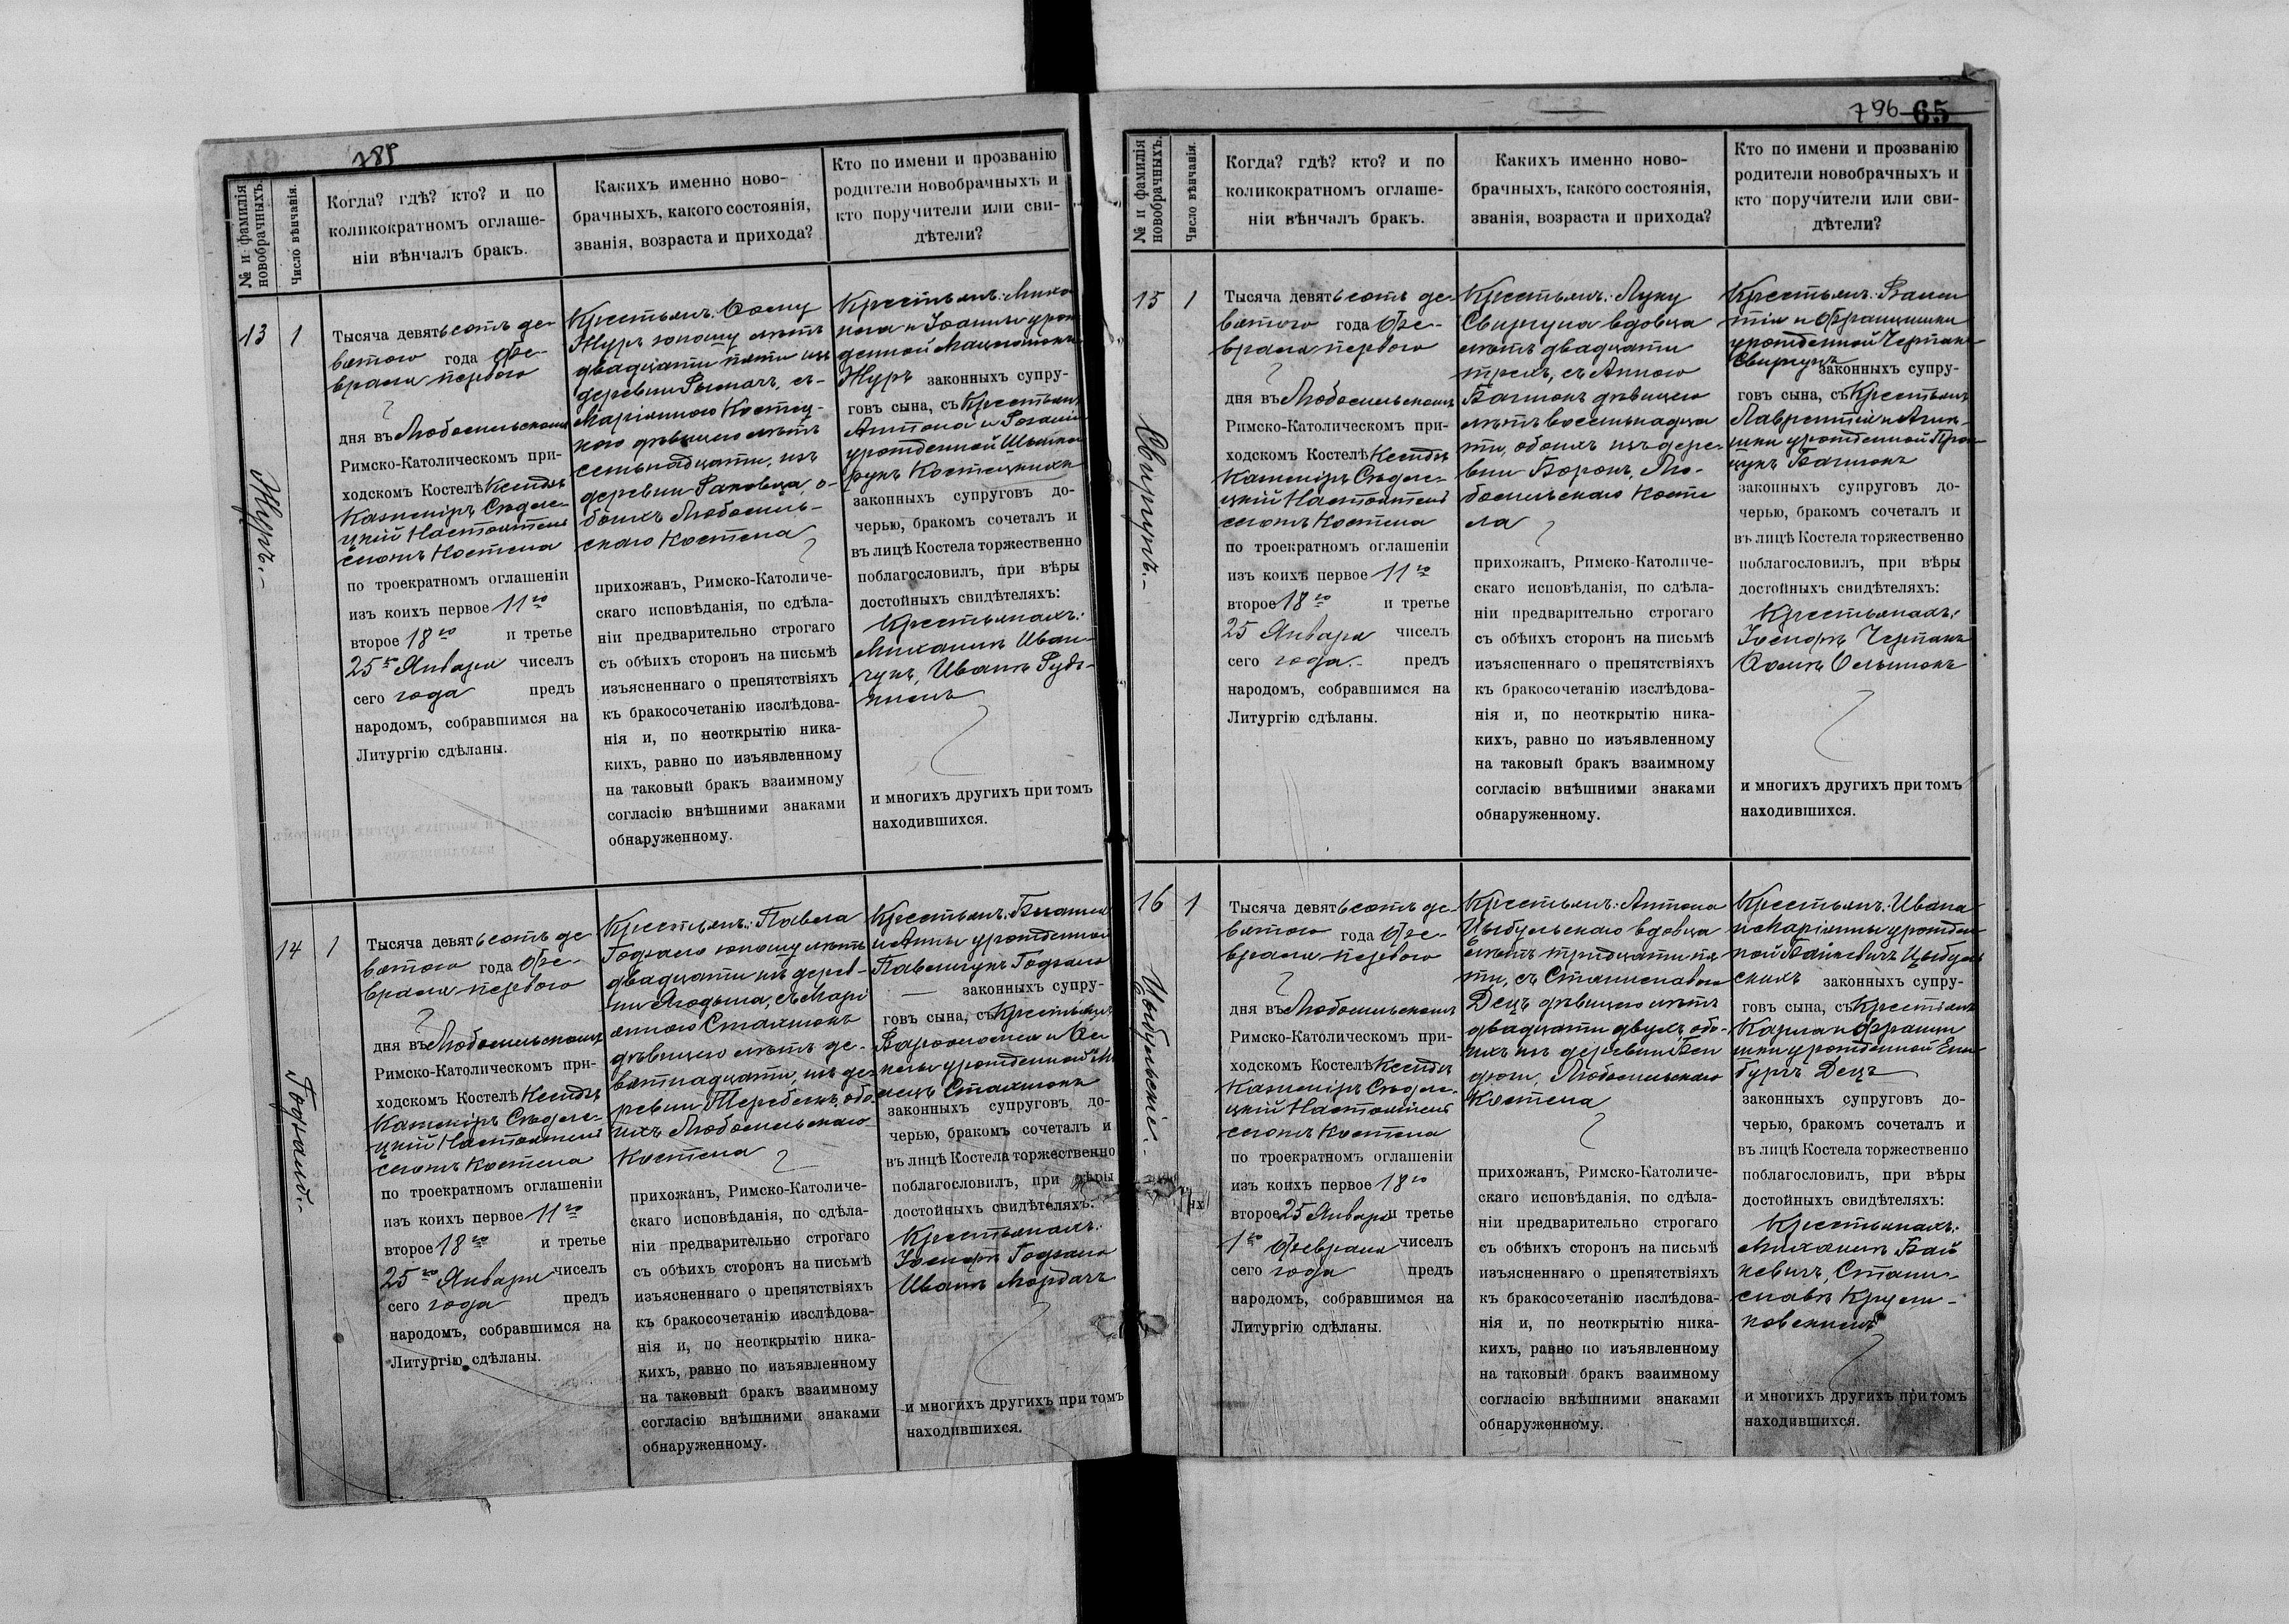 785
№ и фамилія новобрачныхъ.
Число вѣнчанія.
Когда? гдѣ? кто? и по
коликократномъ оглаше-
ніи вѣнчалъ бракъ.
Какихъ именно ново-
брачныхъ, какого состоянія,
званія, возраста и прихода?
Кто по имени и прозванію
родители новобрачныхъ и
кто поручители или сви-
дѣтели?
13
1
Журъ.
Тысяча девятьсотъ де-
вятого года Фе-
враля перваго
дня въ Любосельскомъ
Римско-Католическомъ при-
ходскомъ Костелѣ Ксендзъ
Казиміръ
цкій Настоятель
сего Костела
по троекратномъ оглашеніи
изъ коихъ первое 11го
второе 18го и третье
25го Января чиселъ
сего года предъ
народомъ, собравшимся на
Литургію сдѣланы.
Крестьянъ: Ѳому
Журъ юношу лѣтъ
двадцати пяти изъ
деревни съ
Маріянною Костец-
кою дѣвицею лѣтъ
семьнадцати, изъ
деревни Раковца, о-
боихъ Любосель-
скаго Костела
прихожанъ, Римско-Католиче-
скаго исповѣданія, по сдѣла-
ніи предварительно строгаго
съ обѣихъ сторонъ на письмѣ
изъясненнаго о препятствіяхъ
къ бракосочетанію изслѣдова-
нія и, по неоткрытію ника-
кихъ, равно по изъявленному
на таковый бракъ взаимному
согласію внѣшними знаками
обнаруженному.
Крестьянъ: Мико-
лая и Іоанны урож-
денной
Журъ законныхъ супру-
говъ сына, съ Крестьянъ
Антона и Розаліи
урожденной
Костецкихъ
законныхъ супруговъ до-
черью, бракомъ сочеталъ и
въ лицѣ Костела торжественно
поблагословилъ, при вѣры
достойныхъ свидѣтеляхъ:
Крестьянахъ:
Михаилѣ Иван-
чукъ, Иванѣ
и многихъ другихъ при томъ
находившихся.
14
1
Годзало.
Тысяча девятьсотъ де-
вятого года Фе-
враля перваго
дня въ Любосельскомъ
Римско-Католическомъ при-
ходскомъ Костелѣ Ксендзъ
Казиміръ
цкій Настоятель
сего Костела
по троекратномъ оглашеніи
изъ коихъ первое 11го
второе 18го и третье
25го Января чиселъ
сего года предъ
народомъ, собравшимся на
Литургію сдѣланы.
Крестьянъ: Павла
Годзало юношу лѣтъ
двадцати изъ дерев-
ни съ Марі-
янною Стахіонъ
дѣвицею лѣтъ де-
вятнадцати, изъ де-
ревни Теребежъ, обо-
ихъ Любосельскаго
Костела
прихожанъ, Римско-Католиче-
скаго исповѣданія, по сдѣла-
ніи предварительно строгаго
съ обѣихъ сторонъ на письмѣ
изъясненнаго о препятствіяхъ
къ бракосочетанію изслѣдова-
нія и, по неоткрытію ника-
кихъ, равно по изъявленному
на таковый бракъ взаимному
согласію внѣшними знаками
обнаруженному.
Крестьянъ:
и Анны урожденной
Годзало
законныхъ супру-
говъ сына, съ Крестьянъ
Варѳоломея и
урожденной
Стахіонъ
законныхъ супруговъ до-
черью, бракомъ сочеталъ и
въ лицѣ Костела торжественно
поблагословилъ, при вѣры
достойныхъ свидѣтеляхъ:
Крестьянахъ:
Іосифѣ Годзало
Иванѣ Мордачъ
и многихъ другихъ при томъ
находившихся.
796 65
№ и фамилія новобрачныхъ.
Число вѣнчанія.
Когда? гдѣ? кто? и по
коликократномъ оглаше-
ніи вѣнчалъ бракъ.
Какихъ именно ново-
брачныхъ, какого состоянія,
званія, возраста и прихода?
Кто по имени и прозванію
родители новобрачныхъ и
кто поручители или сви-
дѣтели?
15
1
Свиргунъ.
Тысяча девятьсотъ де-
вятого года Фе-
враля перваго
дня въ Любосельскомъ
Римско-Католическомъ при-
ходскомъ Костелѣ Ксендзъ
Казиміръ
цкій Настоятель
сего Костела
по троекратномъ оглашеніи
изъ коихъ первое 11го
второе 18го и третье
25 Января чиселъ
сего года. предъ
народомъ, собравшимся на
Литургію сдѣланы.
Крестьянъ: Луку
Свиргуна вдовца
лѣтъ двадцати
трехъ, съ Анною
Багіонъ дѣвицею
лѣтъ восемьнадца-
ти, обоихъ изъ дере-
вни Борокъ, Лю-
босельскаго Косте-
ла
прихожанъ, Римско-Католиче-
скаго исповѣданія, по сдѣла-
ніи предварительно строгаго
съ обѣихъ сторонъ на письмѣ
изъясненнаго о препятствіяхъ
къ бракосочетанію изслѣдова-
нія и, по неоткрытію ника-
кихъ, равно по изъявленному
на таковый бракъ взаимному
согласію внѣшними знаками
обнаруженному.
Крестьянъ:
и Францишки
урожденной Черпакъ
Свиргунъ законныхъ супру-
говъ сына, съ Крестьянъ
Лаврентія и
урожденной
Багіонъ
законныхъ супруговъ до-
черью, бракомъ сочеталъ и
въ лицѣ Костела торжественно
поблагословилъ, при вѣры
достойныхъ свидѣтеляхъ:
Крестьянахъ:
Іосифѣ Черпакъ
Ѳомѣ
и многихъ другихъ при томъ
находившихся.
16
1
Цыбульскіе.
Тысяча девятьсотъ де-
вятого года Фе-
враля перваго
дня въ Любосельскомъ
Римско-Католическомъ при-
ходскомъ Костелѣ Ксендзъ
Казиміръ
цкій Настоятель
сего Костела
по троекратномъ оглашеніи
изъ коихъ первое 18го
второе 25 Января и третье
1го Февраля чиселъ
сего года предъ
народомъ, собравшимся на
Литургію сдѣланы.
Крестьянъ: Антона
Цыбульскаго вдовца
лѣтъ тридцати пя-
ти, съ Станиславою
Децъ дѣвицею лѣтъ
двадцати двухъ, обо-
ихъ изъ деревни
Любосельскаго
Костела
прихожанъ, Римско-Католиче-
скаго исповѣданія, по сдѣла-
ніи предварительно строгаго
съ обѣихъ сторонъ на письмѣ
изъясненнаго о препятствіяхъ
къ бракосочетанію изслѣдова-
нія и, по неоткрытію ника-
кихъ, равно по изъявленному
на таковый бракъ взаимному
согласію внѣшними знаками
обнаруженному.
Крестьянъ: Ивана
и Маріянны урожден-
ной Байкевичъ Цыбуль-
скихъ законныхъ супру-
говъ сына, съ Крестьянъ
Карла и Франци-
шки урожденной
Децъ
законныхъ супруговъ до-
черью, бракомъ сочеталъ и
въ лицѣ Костела торжественно
поблагословилъ, при вѣры
достойныхъ свидѣтеляхъ:
Крестьянахъ:
Михаилѣ Бай-
кевичъ, Стани-
славѣ
и многихъ другихъ при томъ
находившихся.